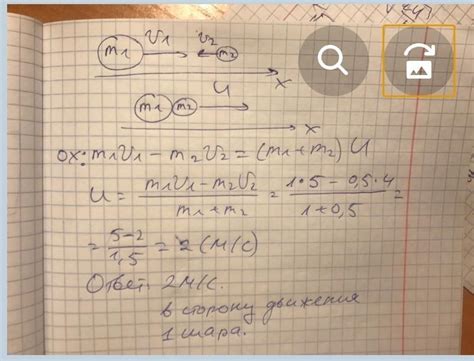 m1 v1 v2 m2
x
m1 m2 u
x
ox: m1v1 - m2v2 = (m1+m2) u
u = m1v1-m2v2 / m1+m2 = 1•5 - 0,5•4 / 1+0,5 =
= 5-2 / 1,5 = 2 (м/с)
Ответ. 2м/с.
в сторону движения
1 шара.